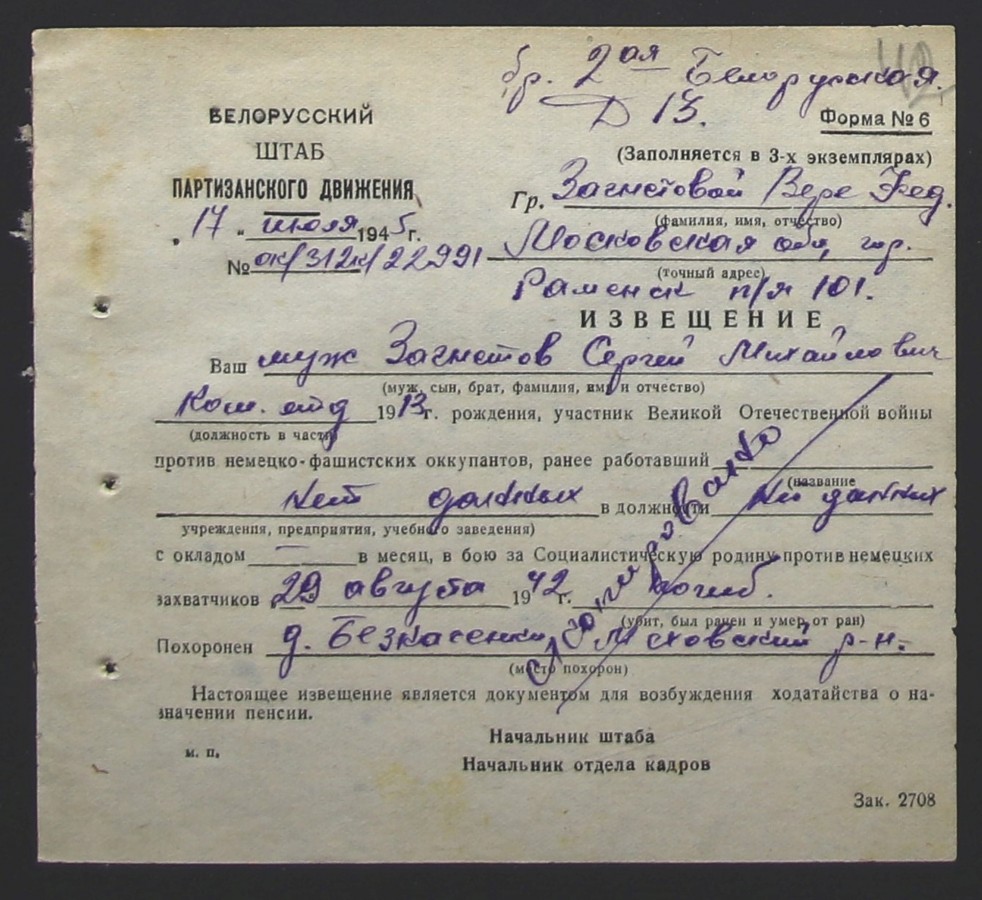 42
бр. 2ая Белорусская.
Д 13.
БЕЛОРУССКИЙ
ШТАБ
ПАРТИЗАНСКОГО ДВИЖЕНИЯ
„17" июля 1945г.
№ ок/312к/22991
Форма № 6
(Заполняется в 3-х экземплярах)
Гр. Загнетовой Вере Фед.
(фамилия, имя, отчество)
Московская обл, гор.
(точный адрес)
Раменск п/я 101.
ИЗВЕЩЕНИЕ
Ваш муж Загнетов Сергей Михайлович
(муж, сын, брат, фамилия, имя и отчество)
Ком. отд 1913г. рождения, участник Великой Отечественной войны
(должность в части)
против немецко-фашистских оккупантов, ранее работавший
(название
нет данных в должности н/и данных
учреждения, предприятия, учебного заведения)
с окладом — в месяц, в бою за Социалистическую родину против немецких
захватчиков „29" августа 1942 г. погиб.
(убит, был ранен и умер от ран)
Похоронен д. Безкасенки, Меховский р-н.
(место похорон)
Настоящее извещение является документом для возбуждения ходатайства о на-
значении пенсии.
Начальник штаба
м. п.
Начальник отдела кадров
Зак. 2708